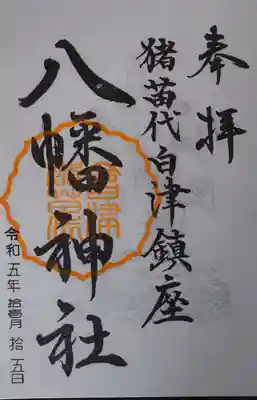 奉拝
猪苗代白津鎮座
八幡神社
令和五年拾壱月拾五日